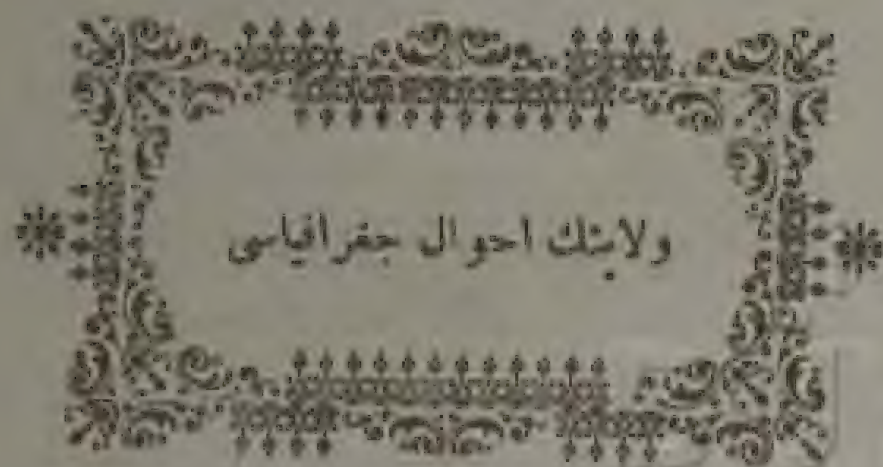 ولايتك احوال جغرافياسى